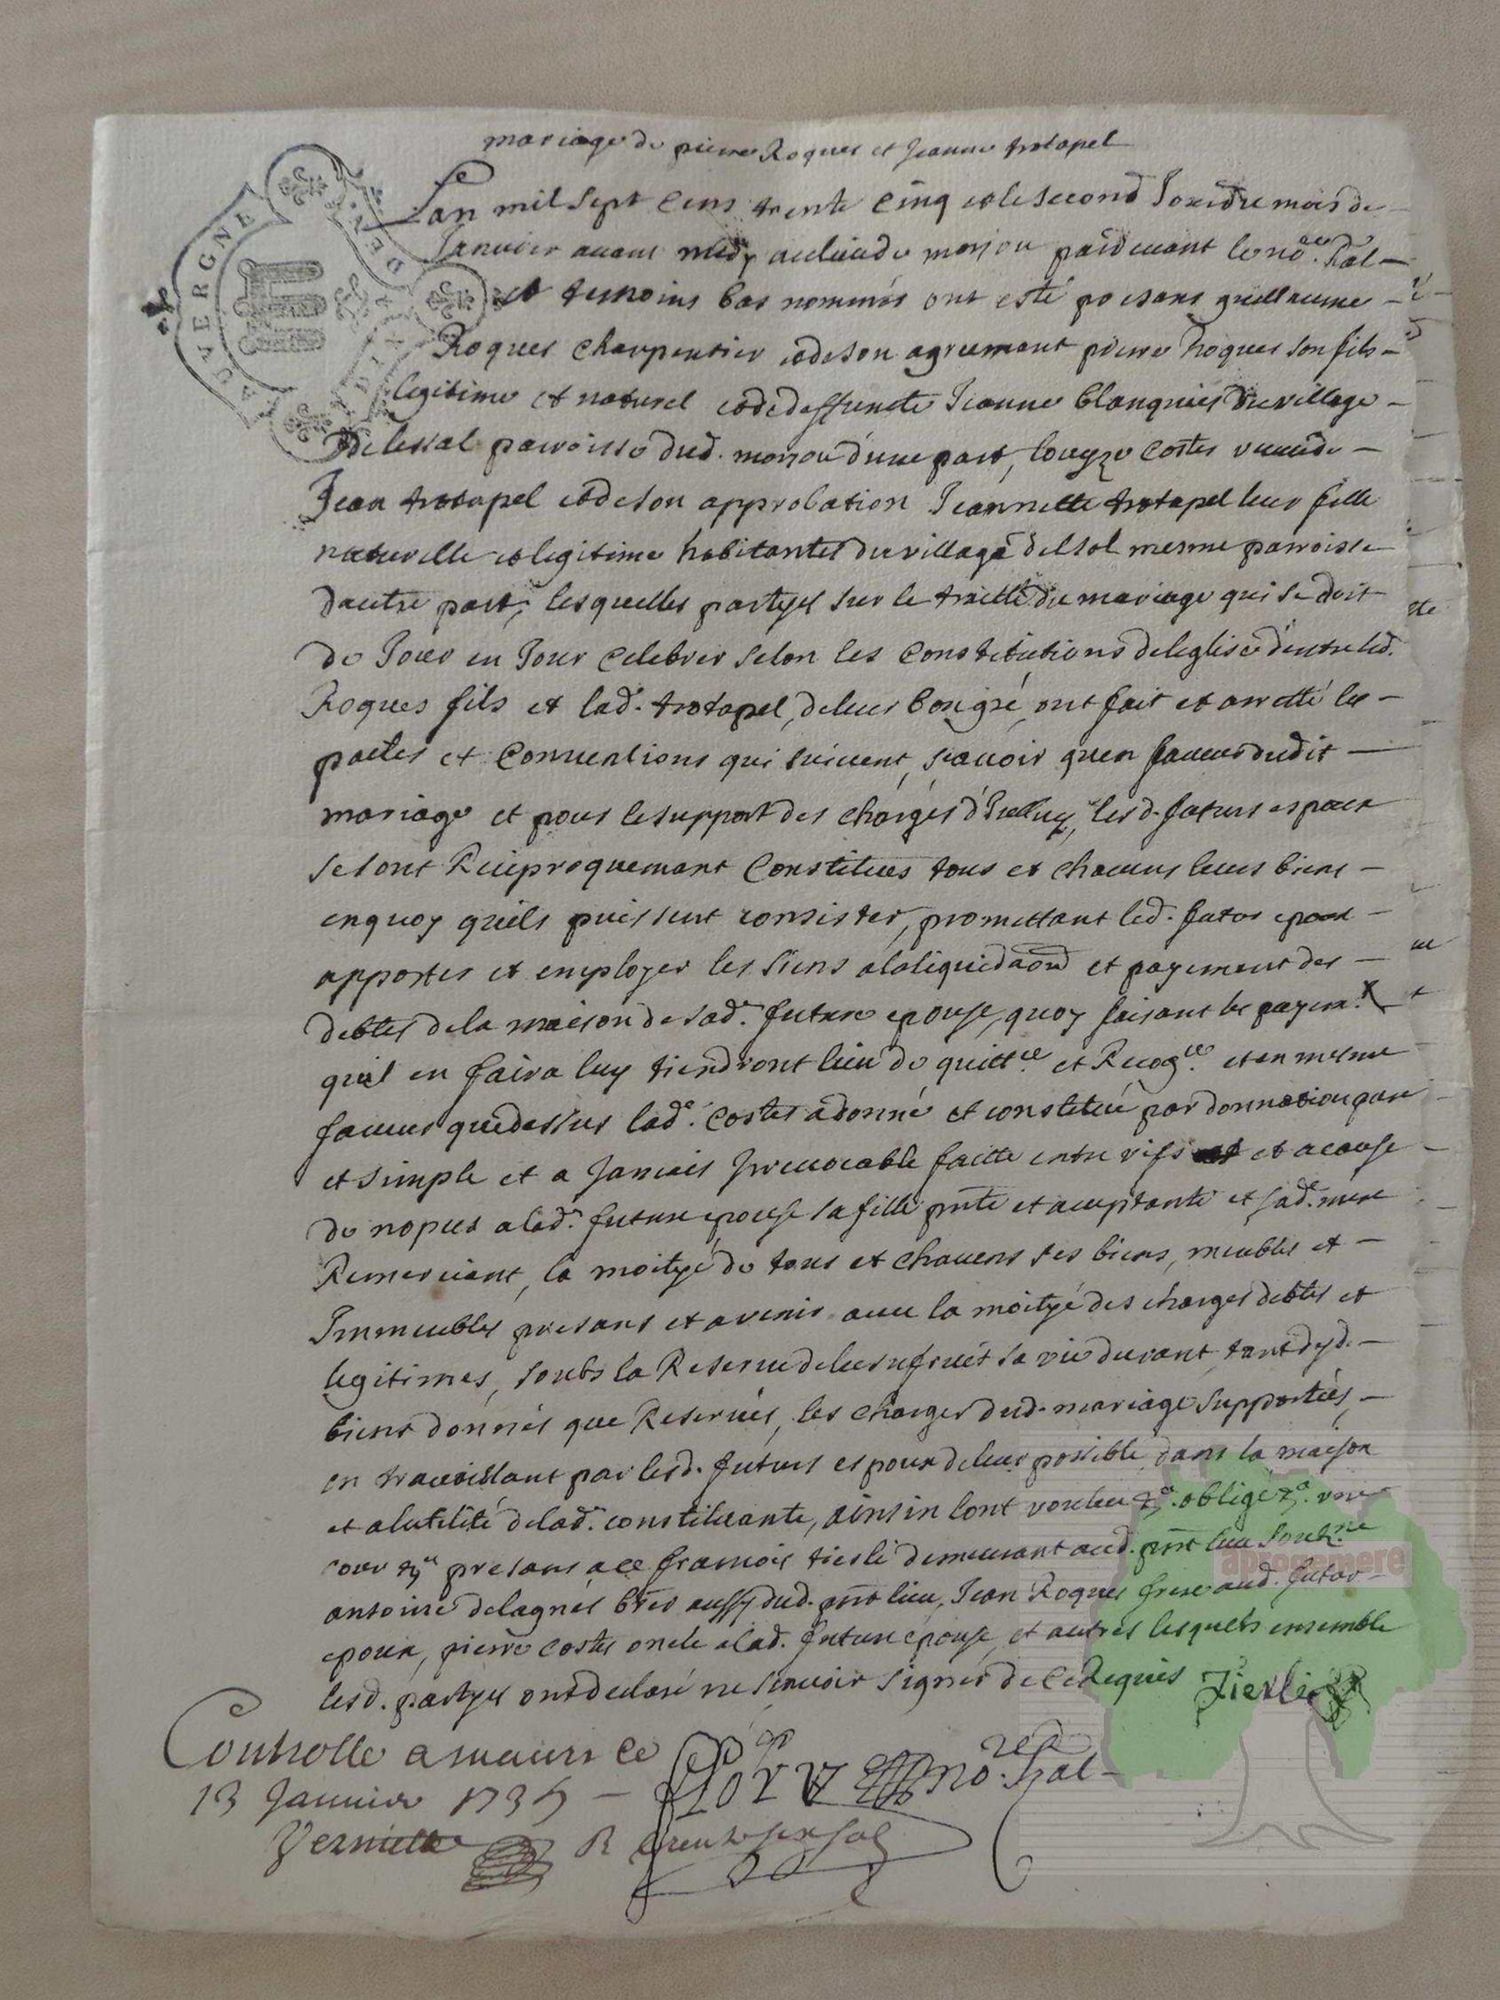 mariage de pierre Roques et Jeanne trotapel
Lan mil sept cens trente cinq et le second Jour du mois de
Janvier avant midy au lieu de monjou pardevant le no.re Ral
et temoins bas nommés ont esté presans guillaume
Roques charpentier et de son agrement pierre Roques son fils
legitime et naturel et de deffuncte Jeanne blanquies du village
de lessal parroisse dud. monjou d'une part, louyze costes veuve de
Jean trotapel et de son approbation Jeannette trotapel leur fille
naturelle et legitime habitantes du village delsol mesme parroisse
dautre part, lesquelles partyes sur le traitté du mariage qui se doit
de Jour en Jour celebrer selon les constitutions de leglise d'entre led.
Roques fils et lad.e trotapel, de leur bon gré, ont fait et arretté les
pactes et conventions qui suivent, scavoir quen faveur dudit
mariage et pour le support des charges d'Jcelluy, lesd. futurs espoux
se sont Reciproquemant constitués tous et chacuns leurs biens
en quoy quils puissent consister, promettant led. futur epoux
apporter et employer les siens a la liquida͠on et payement des
debtes de la maison de sad.e future epouse, quoy faisant les payem.t
quil en faira luy tiendront lieu de quitt.ce et Recog.ce et en mesme
faveur que dessus lad.e costes a donné et constitué par donnation pure
et simple et a Jamais Jrrevocable faitte entre vifs et a cause
de nopces a lad.e future epouse sa fille pnte et acceptante et sad.e mere
Remerciant, la moityé de tous et chacuns ses biens, meubles et
Jmmeubles presans et avenir avec la moityé des charges debtes et
legitimes, soubs la Reserve de lusufruit sa vie durant, tant dysd.
biens donnés que Reservés, les charges dud. mariage supportées,
en travaillant par lesd. futurs espoux de leur possible dans la maison
et a lutilité de lad.e constituante, ainsin lont vouleu &.a obligé &.a
cour &.a presans a ce francois tierlé demeurant aud. pnt lieu soub.né
antoine delagnes b.ier aussy dud. pnt lieu, Jean Roques frere aud. futur
epoux, pierre costes oncle a lad. future epouse, et autres lesquels ensemble
lesd. partyes ont declaré ne scavoir signer de ce Requis
Tierlé
Controllé a maurs le
13 Janvier 1735
no.re Ral
R
aprogemere
AUVERGNE